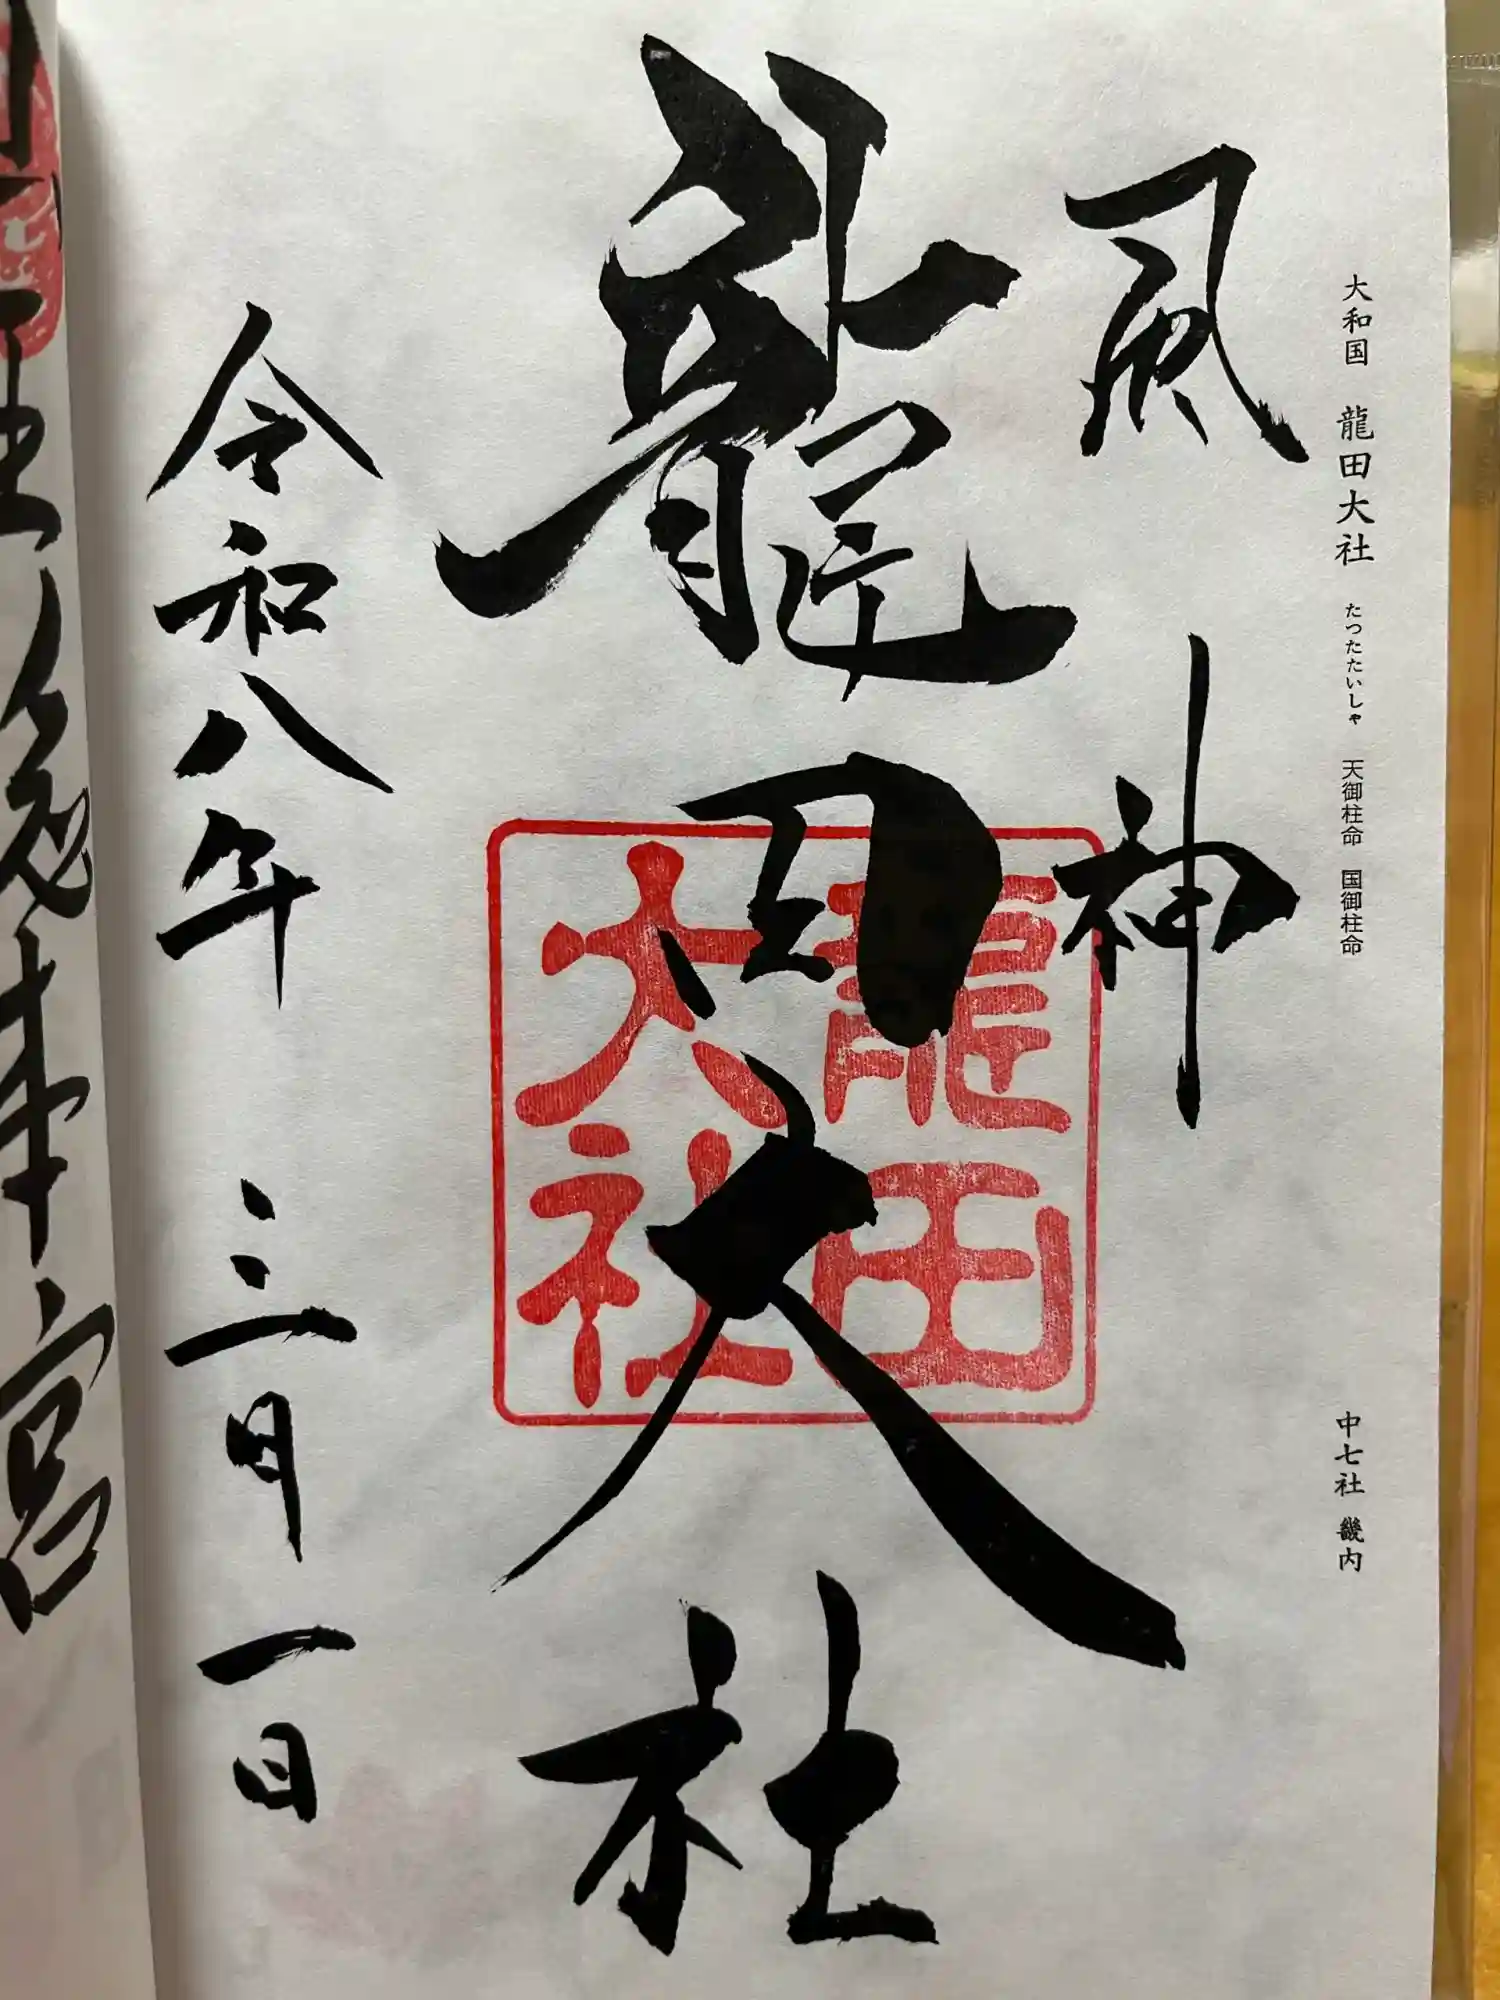 大和国 龍田大社 たつたたいしゃ 天御柱命 国御柱命
中七社 畿内
風神
龍田大社
龍田
大社
令和八年三月一日
宮